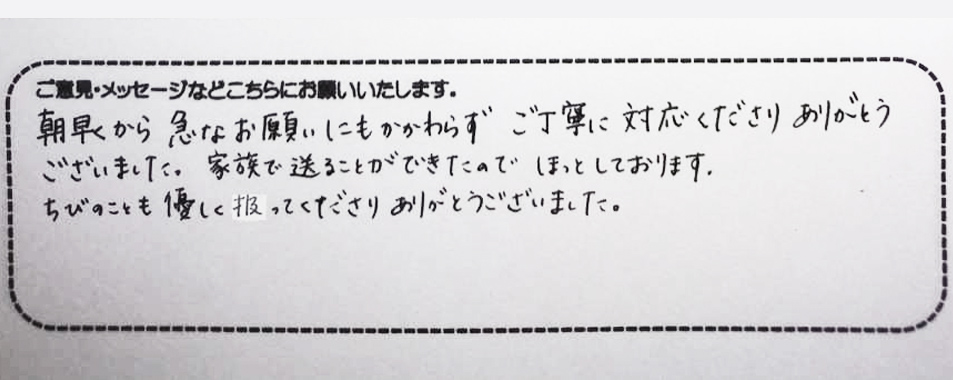 ご意見・メッセージなどこちらにお願いいたします。
朝早くから 急なお願いにもかかわらず ご丁寧に 対応くださり ありがとう
ございました。 家族で送ることができたので ほっとしております。
ちびのことも優しく扱ってくださり ありがとうございました。